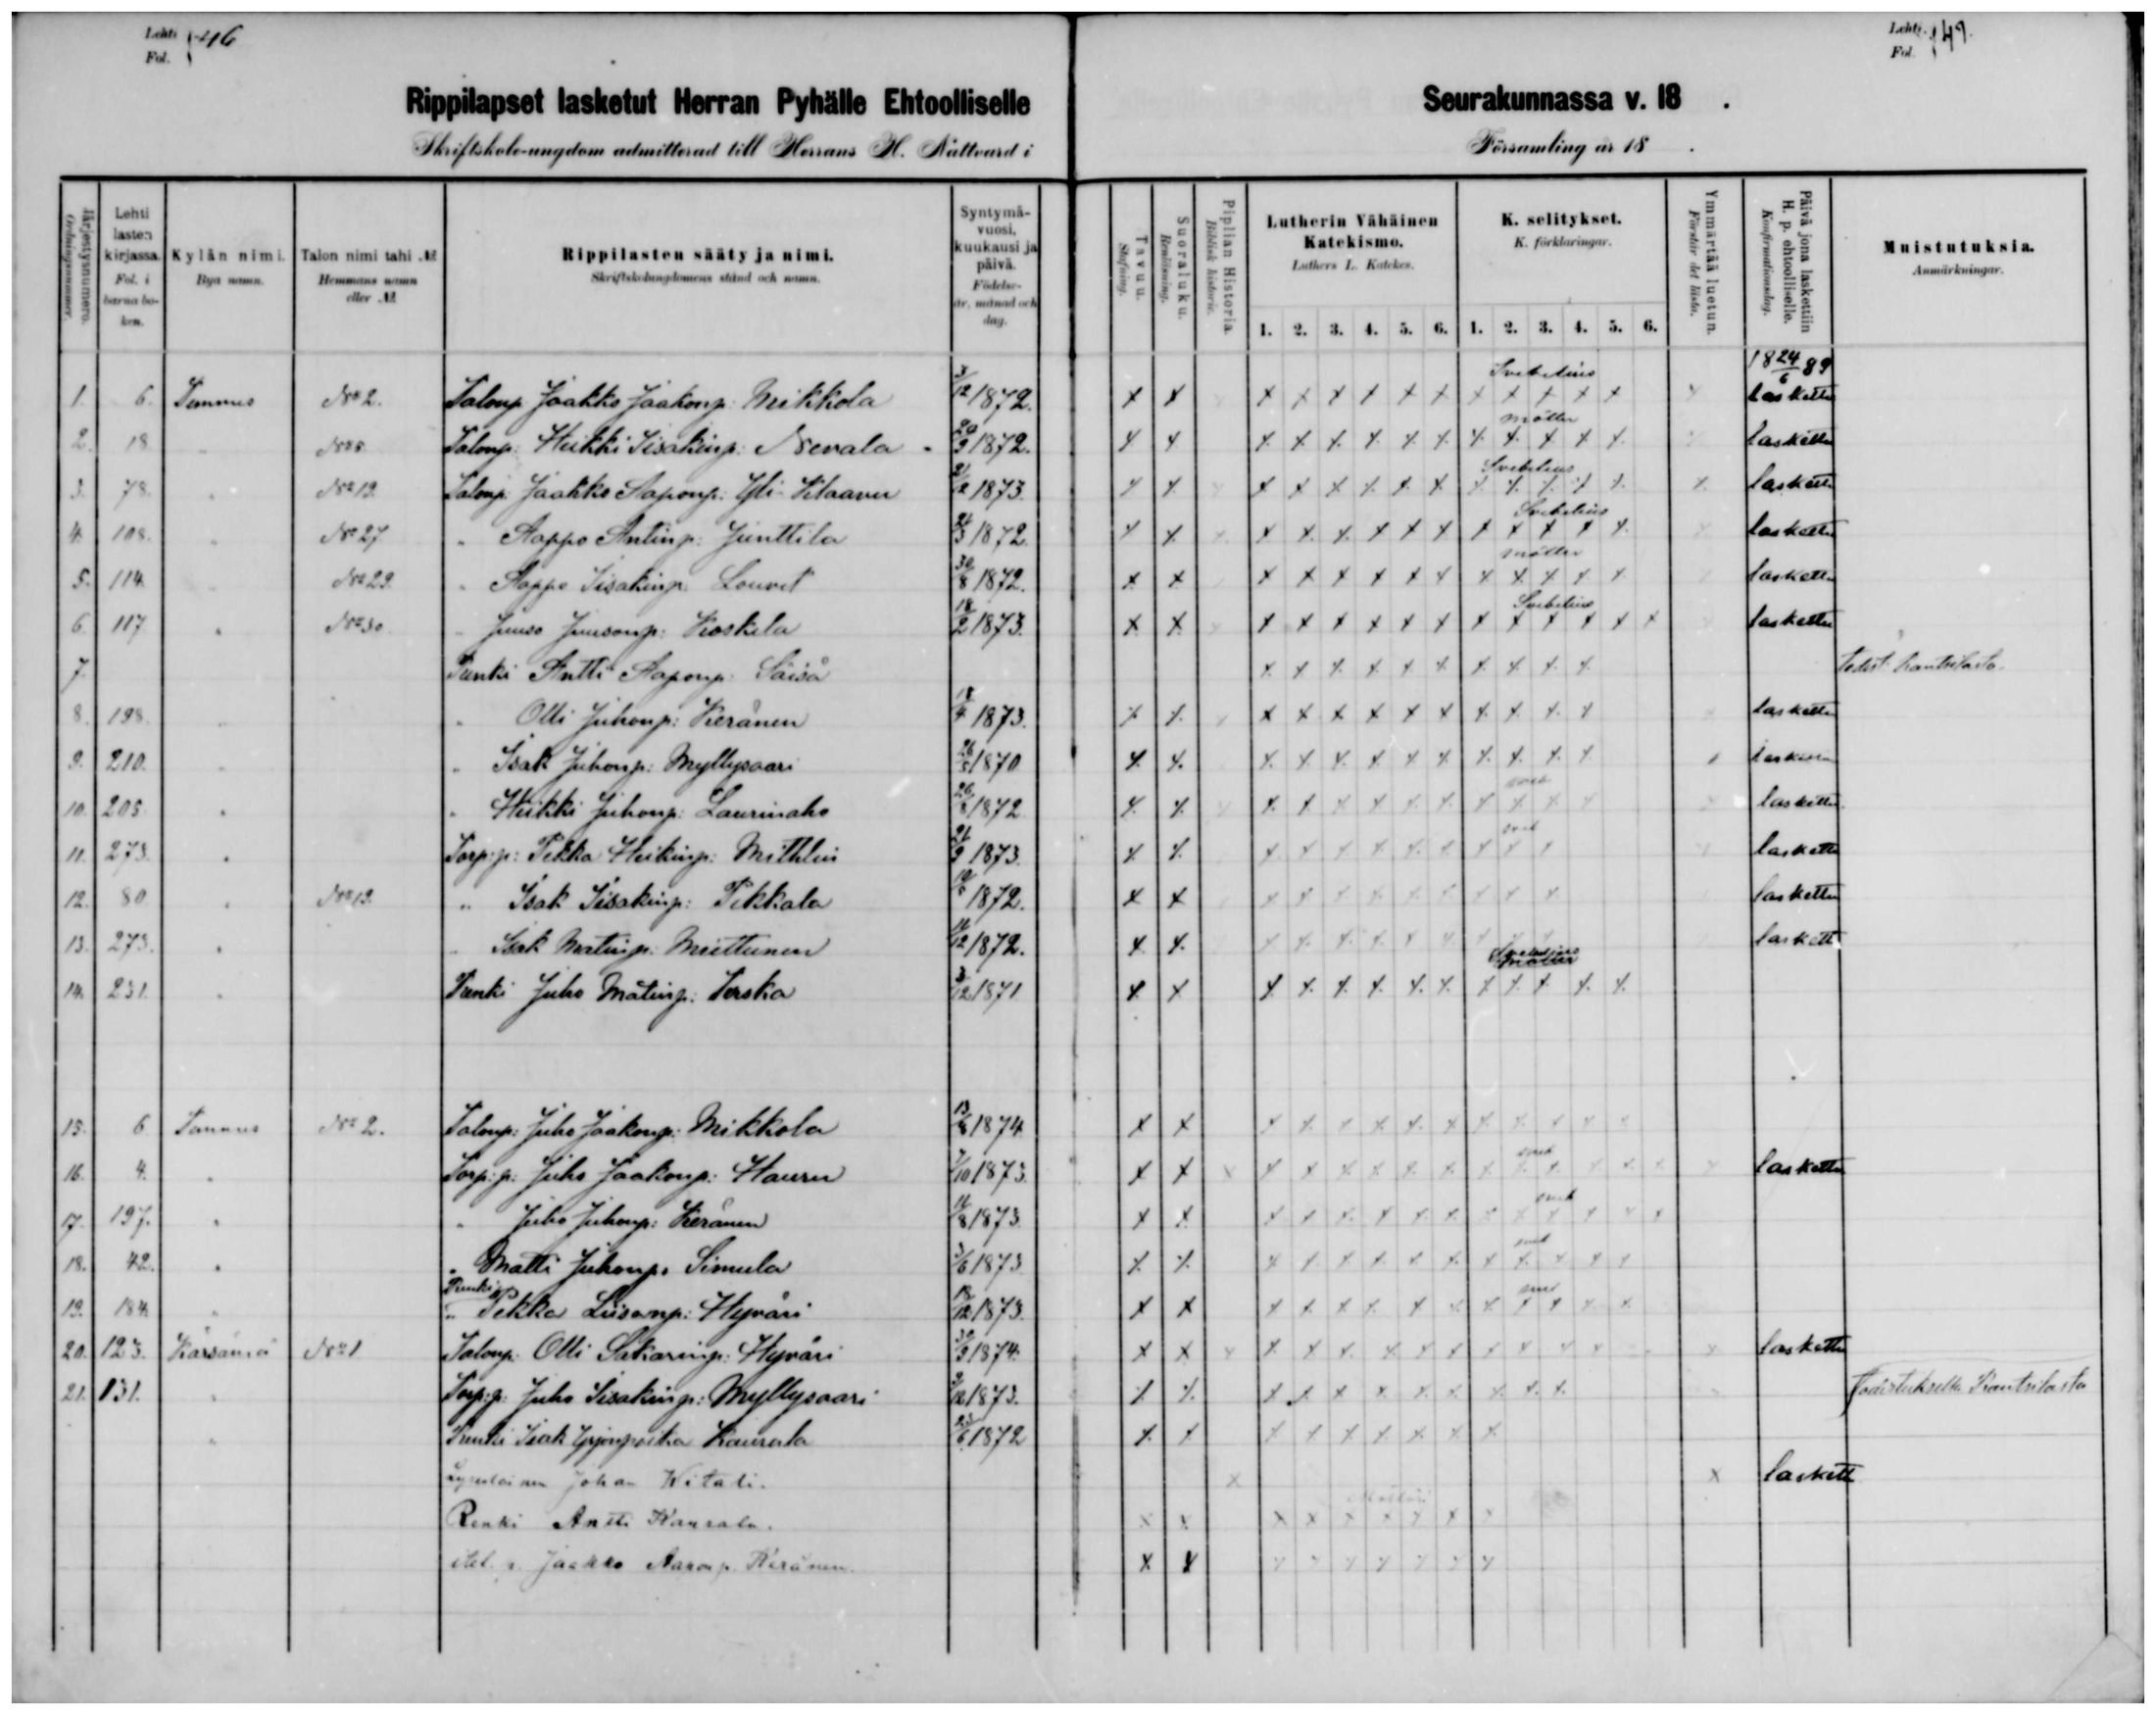 Lehti 146
Fol.
Lehti 149.
Fol.
Rippilapset lasketut Herran Pyhälle Ehtoolliselle Seurakunnassa v. 18 .
Skriftskole-ungdom admitterad till Herrans H. Nattvard i Församling år 18 .
Järjestysnumero. Ordningsnummer.
Lehti lasten kirjassa. Fol. i barnaboken.
Kylän nimi. Bya namn.
Talon nimi tahi № Hemmans namn eller №
Rippilasten sääty ja nimi. Skriftskolungdomens stånd och namn.
Syntymä-vuosi, kuukausi ja päivä. Födelse-år, månad och dag.
Tavuu. Stafning.
Suoraluku. Renläsning.
Piplian Historia. Biblisk historie.
Lutherin Vähäinen Katekismo. Luthers L. Katekes.
K. selitykset. K. förklaringar.
Ymmärtää luetun. Förstår det lästa.
Päivä jona laskettiin H. p. ehtoolliselle. Konfirmationsdag.
Muistutuksia. Anmärkningar.
1. 2. 3. 4. 5. 6. 1. 2. 3. 4. 5. 6.
18 24/6 89
Svebelius
1. 6. Tannus No 2. Talonp. Jaakko Jaakonp: Mikkola 3/12 1872. x x x x x x x x x x x x x x laskettu
möller
2. 18 " No 5. Talonp: Heikki Iisakinp: Nevala 29/9 1872. x x x x x x x x x x x x x laskettu
Svebelius
3. 78. " No 19. Talonp: Jaakko Aaponp: Yli- 21/12 1873. x x x x x x x x x x x x x x laskettu
Svebelius
4. 108. " No 27 " Aappo Antinp: Junttila 24/3 1872. x x x x x x x x x x x x x x laskettu
möller
5. 114. " No 29. " Aappo Iisakinp. Louvet 30/8 1872. x x x x x x x x x x x x x laskettu
Svebelius
6. 117 " No 30 " Juuso Juusonp: Koskela 18/2 1873. x x x x x x x x x x x x x x laskettu
7. Renki Antti Aaponp: Säisä x x x x x x x x x x
8. 198. " " Olli Juhonp: Keränen 18/4 1873. x x x x x x x x x x x x laskettu
9. 210. " " Isak Juhonp: Myllysaari 26/5 1870 x x x x x x x x x x x x laskettu
sveb
10. 205. " " Heikki Juhonp: Laurinaho 26/8 1872 x x x x x x x x x x x x laskettu
sveb
11. 273. " Torp:p: Pekka Heikinp: 21/9 1873. x x x x x x x x x x x laskettu
12. 80 " No 19. " Isak Iisakinp: Pekkala 1872. x x x x x x x x x x x laskettu
13. 273. " " Isak Matinp: Miettunen 11/12 1872. x x x x x x x x x x x laskettu
14. 231. " Renki Juho Matinp: Terska 3/12 1871 x x x x x x x x x x x x x
15. 6 Tannus No 2. Talonp: Juho Jaakonp: Mikkola 13/8 1874 x x x x x x x x x x x x x
sveb
16. 4. " Torp:p: Juho Jaakonp: Hauru 7/10 1873. x x x x x x x x x x x x x x x x laskettu
sveb
17. 197. " " Juho Juhonp: Keränen 11/8 1873. x x x x x x x x x x x x x x
sveb
18. 42. " " Matti Juhonp. Simula 3/6 1873. x x x x x x x x x x x x x
Renki
19. 184. " " Pekka Liisanp: Hyväri 18/12 1873. x x x x x x x x x x x x x
20. 123. Kärsämä No 1 Talonp. Olli Sakarinp: Hyväri 30/9 1874. x x x x x x x x x x x x x x laskettu
21. 131. " Torp:p: Juho Iisakinp: Myllysaari 1873. x x x x x x x x x x x
" Renki Isak Yrjönpoika Kaurala 1872 x x x x x x x x x
Johan x x laskett
Renki Antti Kaurala. x x x x x x x x x
Jaakko Aaronp. Keränen. x x x x x x x x x